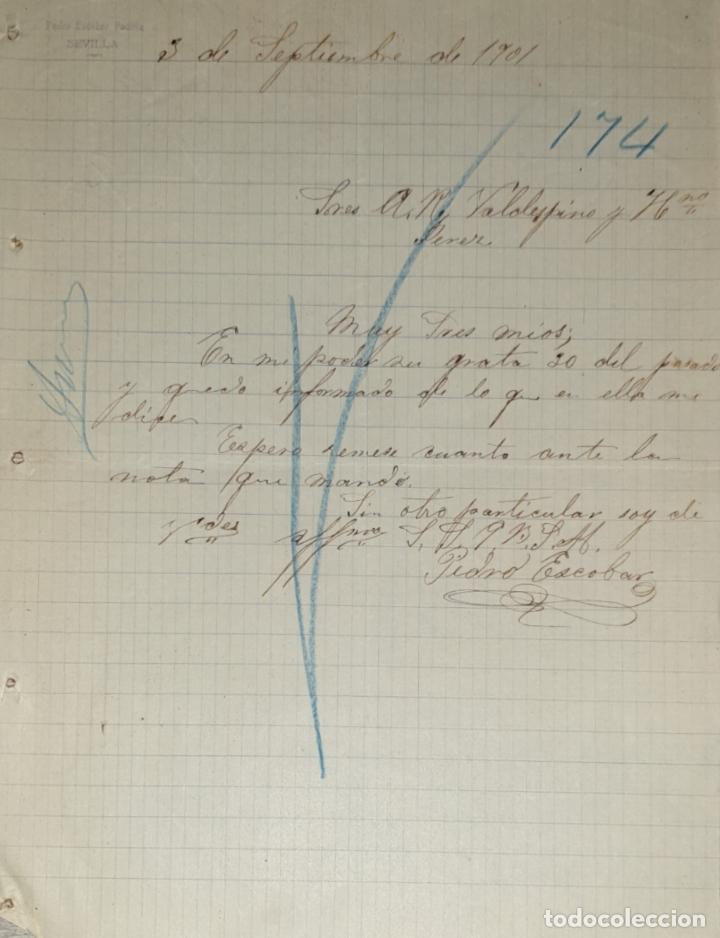 Pedro Escobar Padilla
SEVILLA
3 de Septiembre de 1901
174
Sres A. R. Valdespino y Hno
Jerez
Muy Sres mios;
En mi poder su grata 30 del pasado
y quedo informado de lo que en ella me
dice
Espero remese cuanto ante la
nota que mandé.
Sin otro particular soy de
Vdes affmo S. S. q. B. S. M.
Pedro Escobar
todocoleccion.net